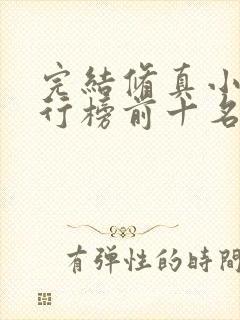 完結脩真小
行榜前十名
有弹性的時間